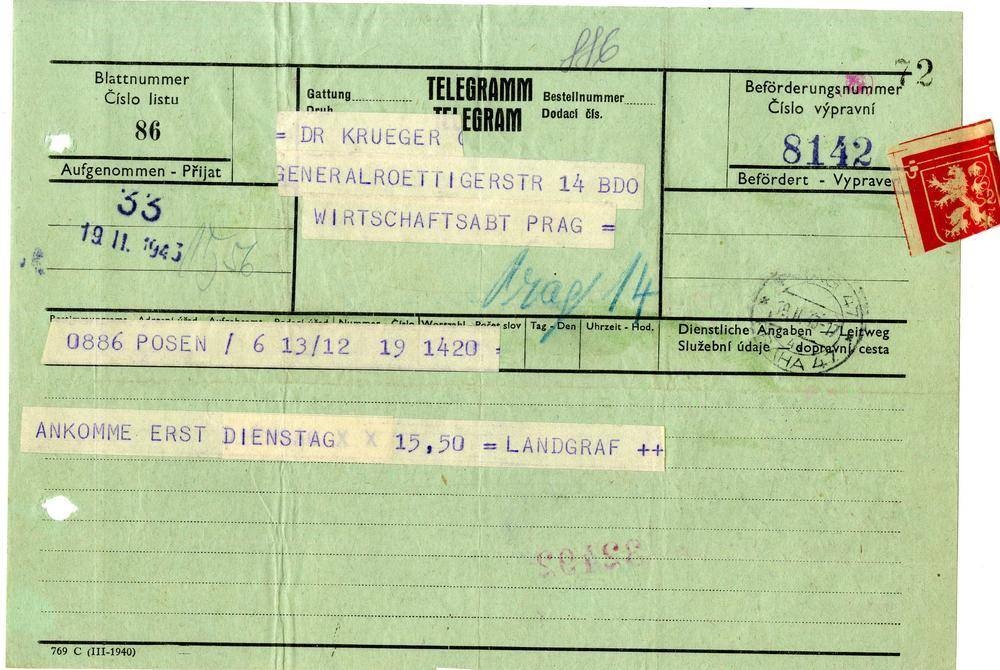 886
72
Blattnummer
Číslo listu
86
Aufgenommen - Přijat
33
19 II. 1943
Gattung
Druh
TELEGRAMM
TELEGRAM
Bestellnummer
Dodací čís.
Beförderungsnummer
Číslo výpravní
8142
Befördert - Vyprave
= DR KRUEGER (
GENERALROETTIGERSTR 14 BDO
WIRTSCHAFTSABT PRAG =
Prag 14
Wortzahl Počet slov Tag - Den Uhrzeit - Hod.
Dienstliche Angaben Leitweg
Služební údaje dopravní cesta
0886 POSEN / 6 13/12 19 1420 =
ANKOMME ERST DIENSTAG X X 15,50 = LANDGRAF ++
769 C (III-1940)